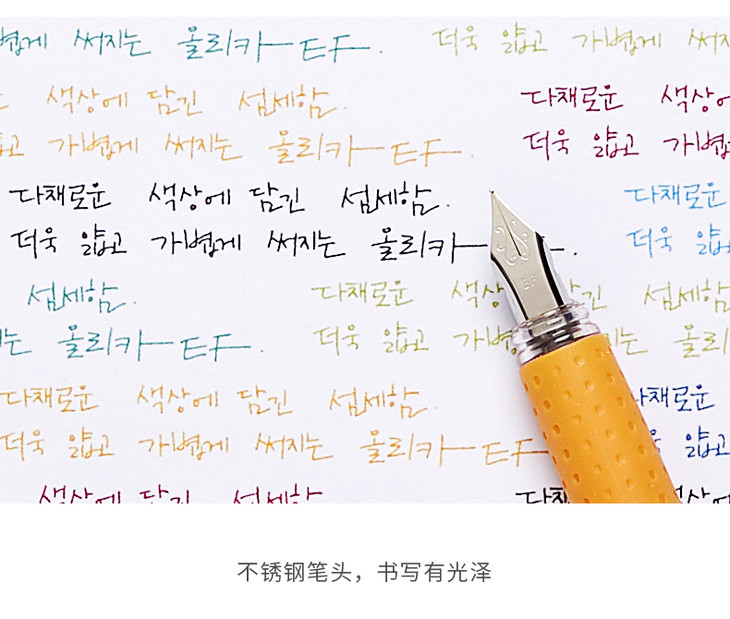 볍게 써지는 올리카 EF. 더욱 얇고 가볍게 써지
색상에 담긴 섬세함. 다채로운 색상에
고 가볍게 써지는 올리카 EF. 더욱 얇고 가볍
다채로운 색상에 담긴 섬세함. 다채로운
더욱 얇고 가볍게 써지는 올리카 . 더욱 얇
섬세함. 다채로운 색상 긴 섬세함
는 올리카 EF. 더욱 얇고 가볍 는 올리
다채로운 색상에 담긴 섬세함. 채로운
더욱 얇고 가볍게 써지는 올리카 EF 얇고
색상에 담긴 섬세함 다채 상에
EF
不锈钢笔头，书写有光泽